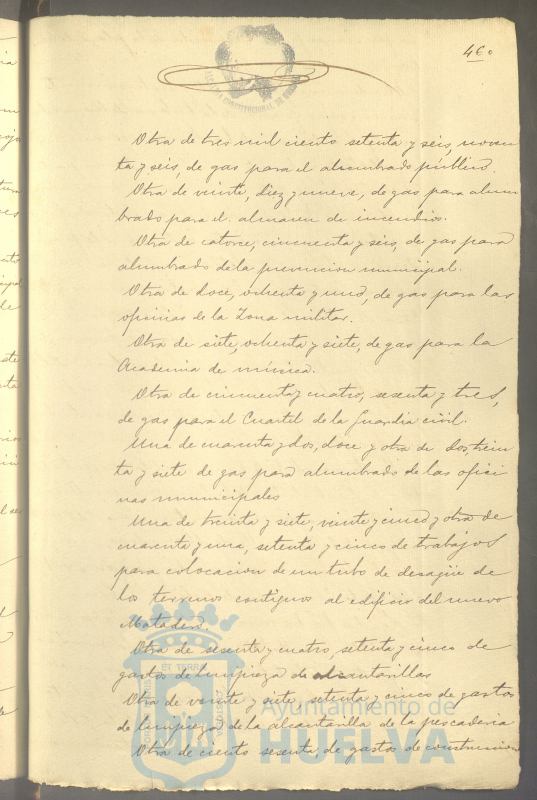 46.
Otra de tres mil ciento setenta y seis, noven
ta y seis, de gas para el alumbrado público.
Otra de veinte, diez y nueve, de gas para alum
brado para el almacen de incendios.
Otra de catorce, cincuenta y seis, de gas para
alumbrado de la prevencion municipal.
Otra de doce, ochenta y uno, de gas para las
oficinas de la Zona militar.
Otra de siete, ochenta y siete, de gas para la
Academia de música.
Otra de cincuenta y cuatro, sesenta y tres,
de gas para el Cuartel de la Guardia civil.
Una de cuarenta y dos, doce y otra de dos, trein
ta y siete de gas para alumbrado de las ofici
nas municipales
Una de treinta y siete, veinte y cinco y otra de
cuarenta y una, setenta y cinco de trabajos
para colocacion de un tubo de desagüe de
los terrenos contiguos al edificio del nuevo
Matadero.
Otra de sesenta y cuatro, setenta y cinco de
gastos de limpieza de alcantarillas
Otra de veinte y siete, setenta y cinco de gastos
de limpieza de la alcantarilla de la pescaderia
Otra de ciento sesenta, de gastos de construccion
Ayuntamiento de
HUELVA